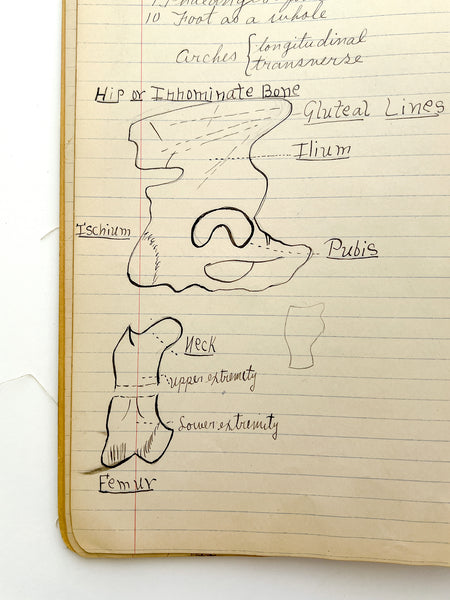 10 Foot as a whole
Arches { longitudinal
transverse
Hip or Innominate Bone
Gluteal Lines
Ilium
Ischium
Pubis
Neck
Upper extremity
Lower extremity
Femur